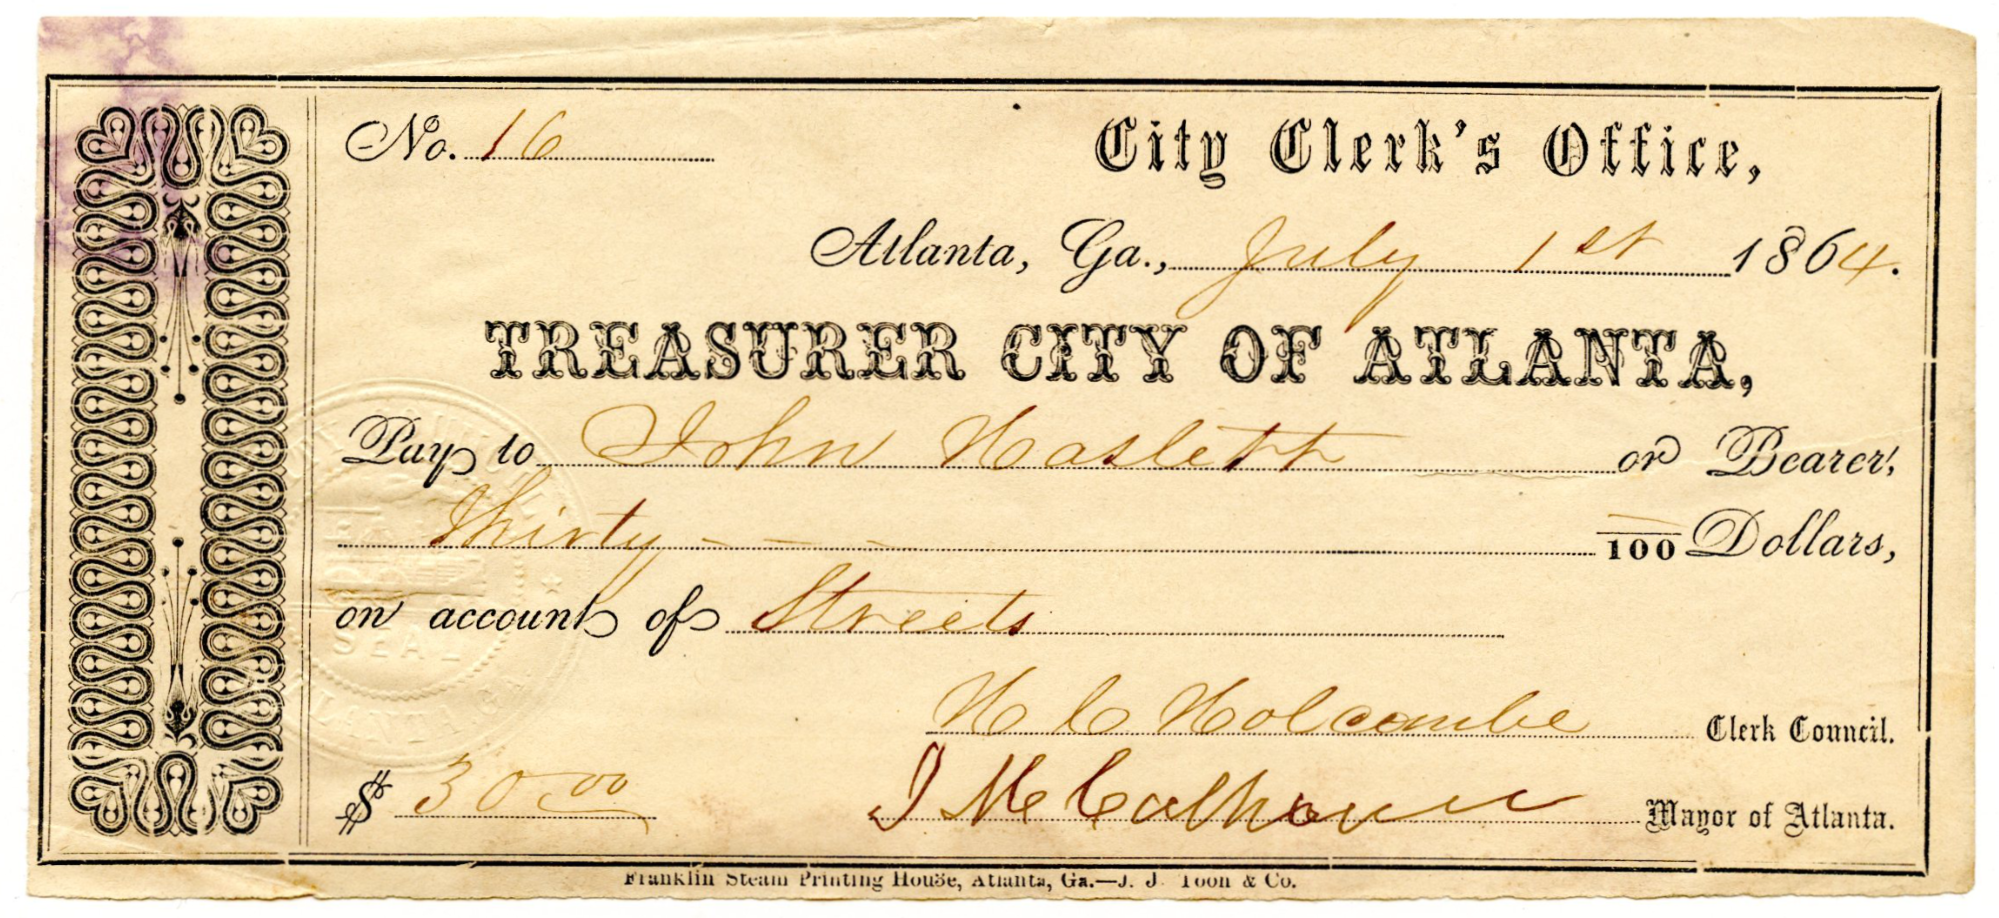 No. 16
City Clerk's Office,
Atlanta, Ga., July 1st 1864.
TREASURER CITY OF ATLANTA,
Pay to John Haslett or Bearer,
Thirty - - - — /100 Dollars,
on account of Streets
SEAL
H C Holcombe Clerk Council.
$ 30.00 J M Calhoun Mayor of Atlanta.
Franklin Steam Printing House, Atlanta, Ga.—J. J. Toon & Co.